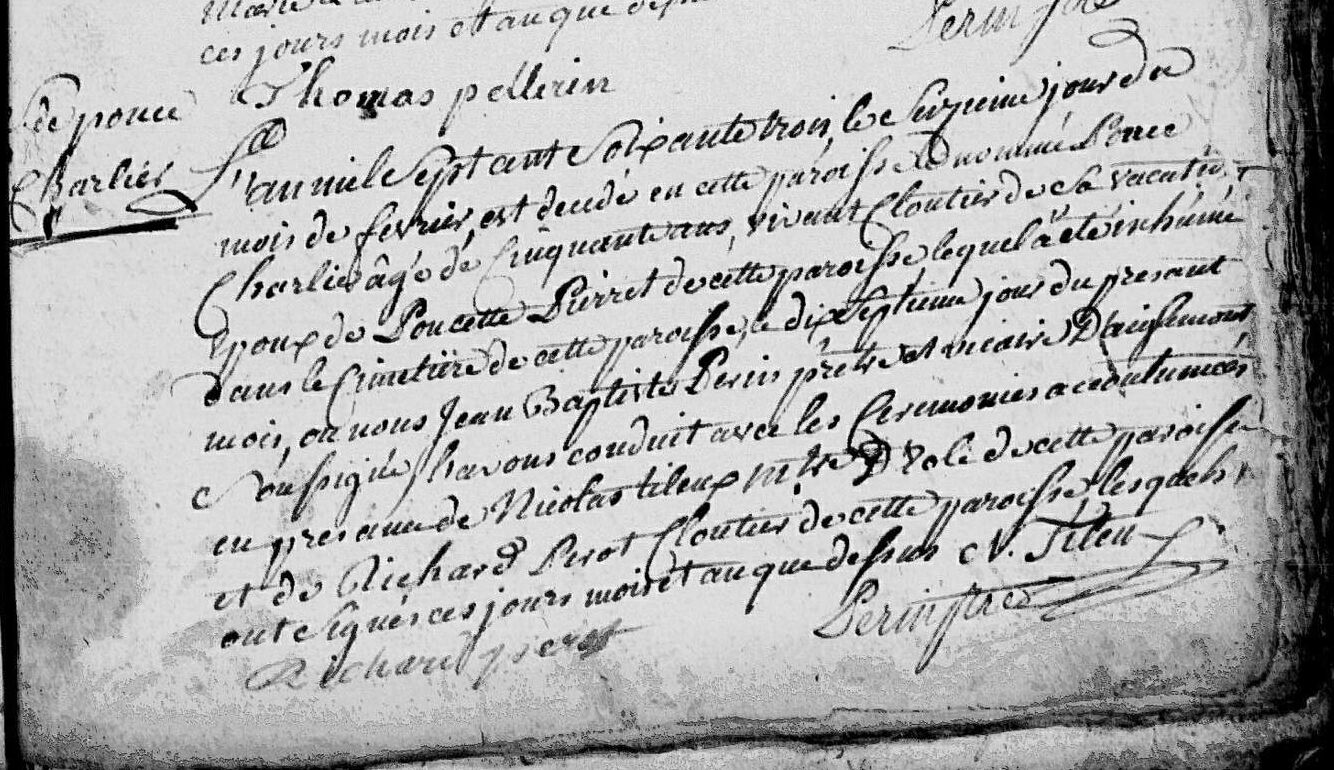 ces jours mois et an que
Perin
Thomas pellerin
S. de ponce
Charlier
L'an mil Sept cent Soixante trois, le Seizieme jour du
mois de fevrier, est decedé en cette paroisse le nommé Ponce
Charlier âgé de Cinquante ans, vivant Cloutier de Sa vacation
Epoux de Poncette Pierret de cette paroisse lequel a été inhumé
dans le Cimetiere de cette paroisse, le dix Septieme jour du presant
mois, ou nous Jean Baptiste Perin prêtre et vicaire
Soussigné, l'avons conduit avec les Ceremonies accoutumées
en presence de Nicolas tileux mtre D'Ecole de cette paroisse
et de Richard Perot Cloutier de cette paroisse lesquels
ont Signés ces jours mois et an que dessus N. Tileu
Perin ptre
Richard pierot